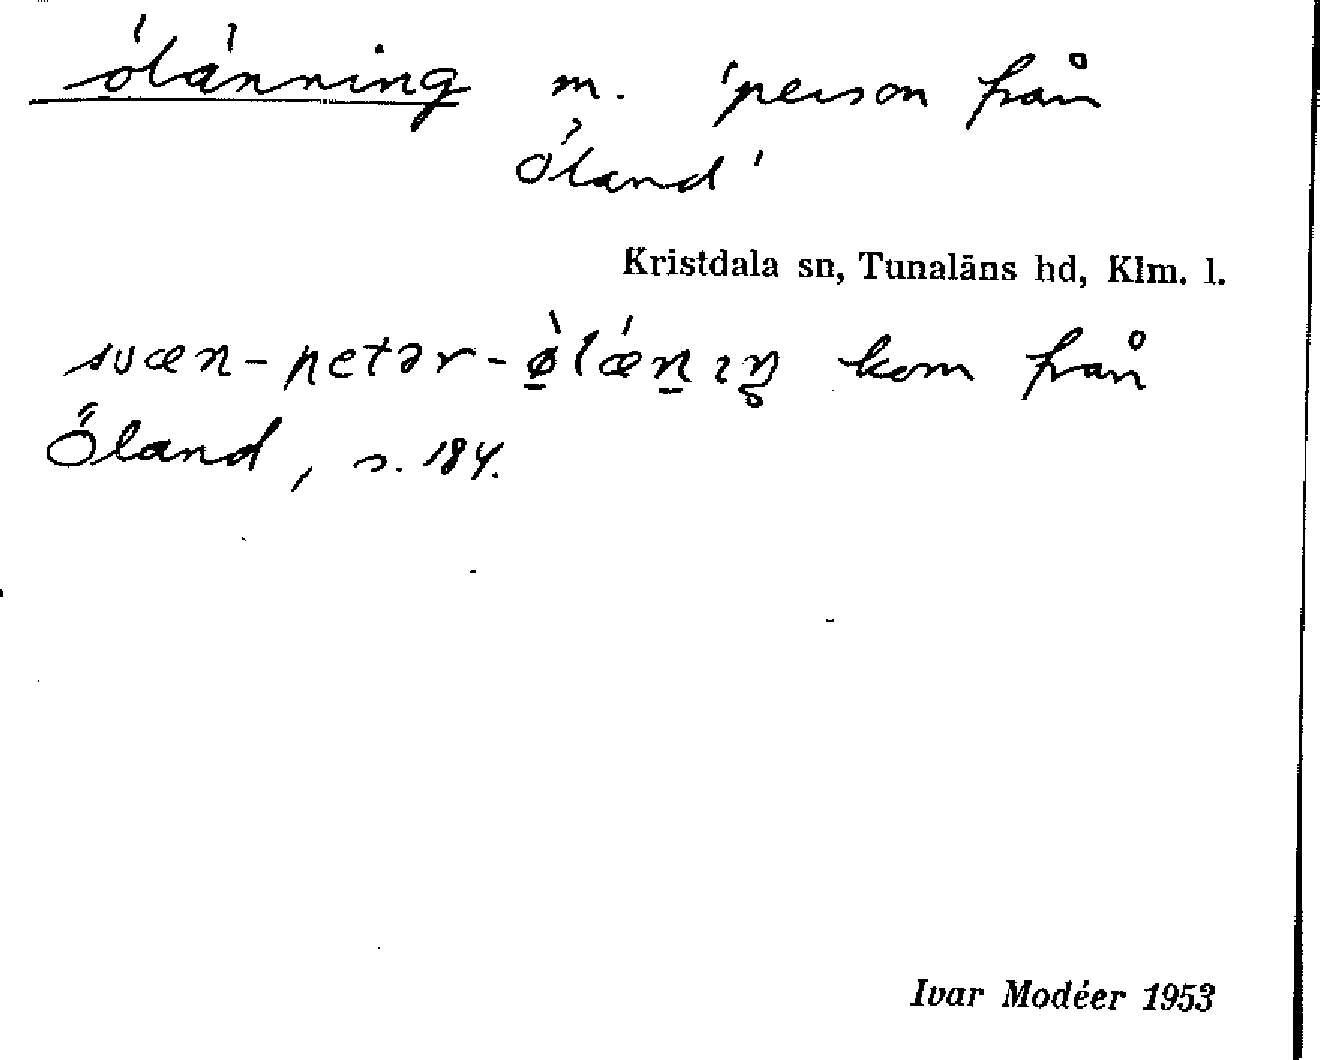 ölänning m. 'person från
Öland'
Kristdala sn, Tunaläns hd, Klm. l.
svæn-petər-ø̠̀lǽn̠ıŋ̥ kom från
Öland, s. 184.
Ivar Modéer 1953